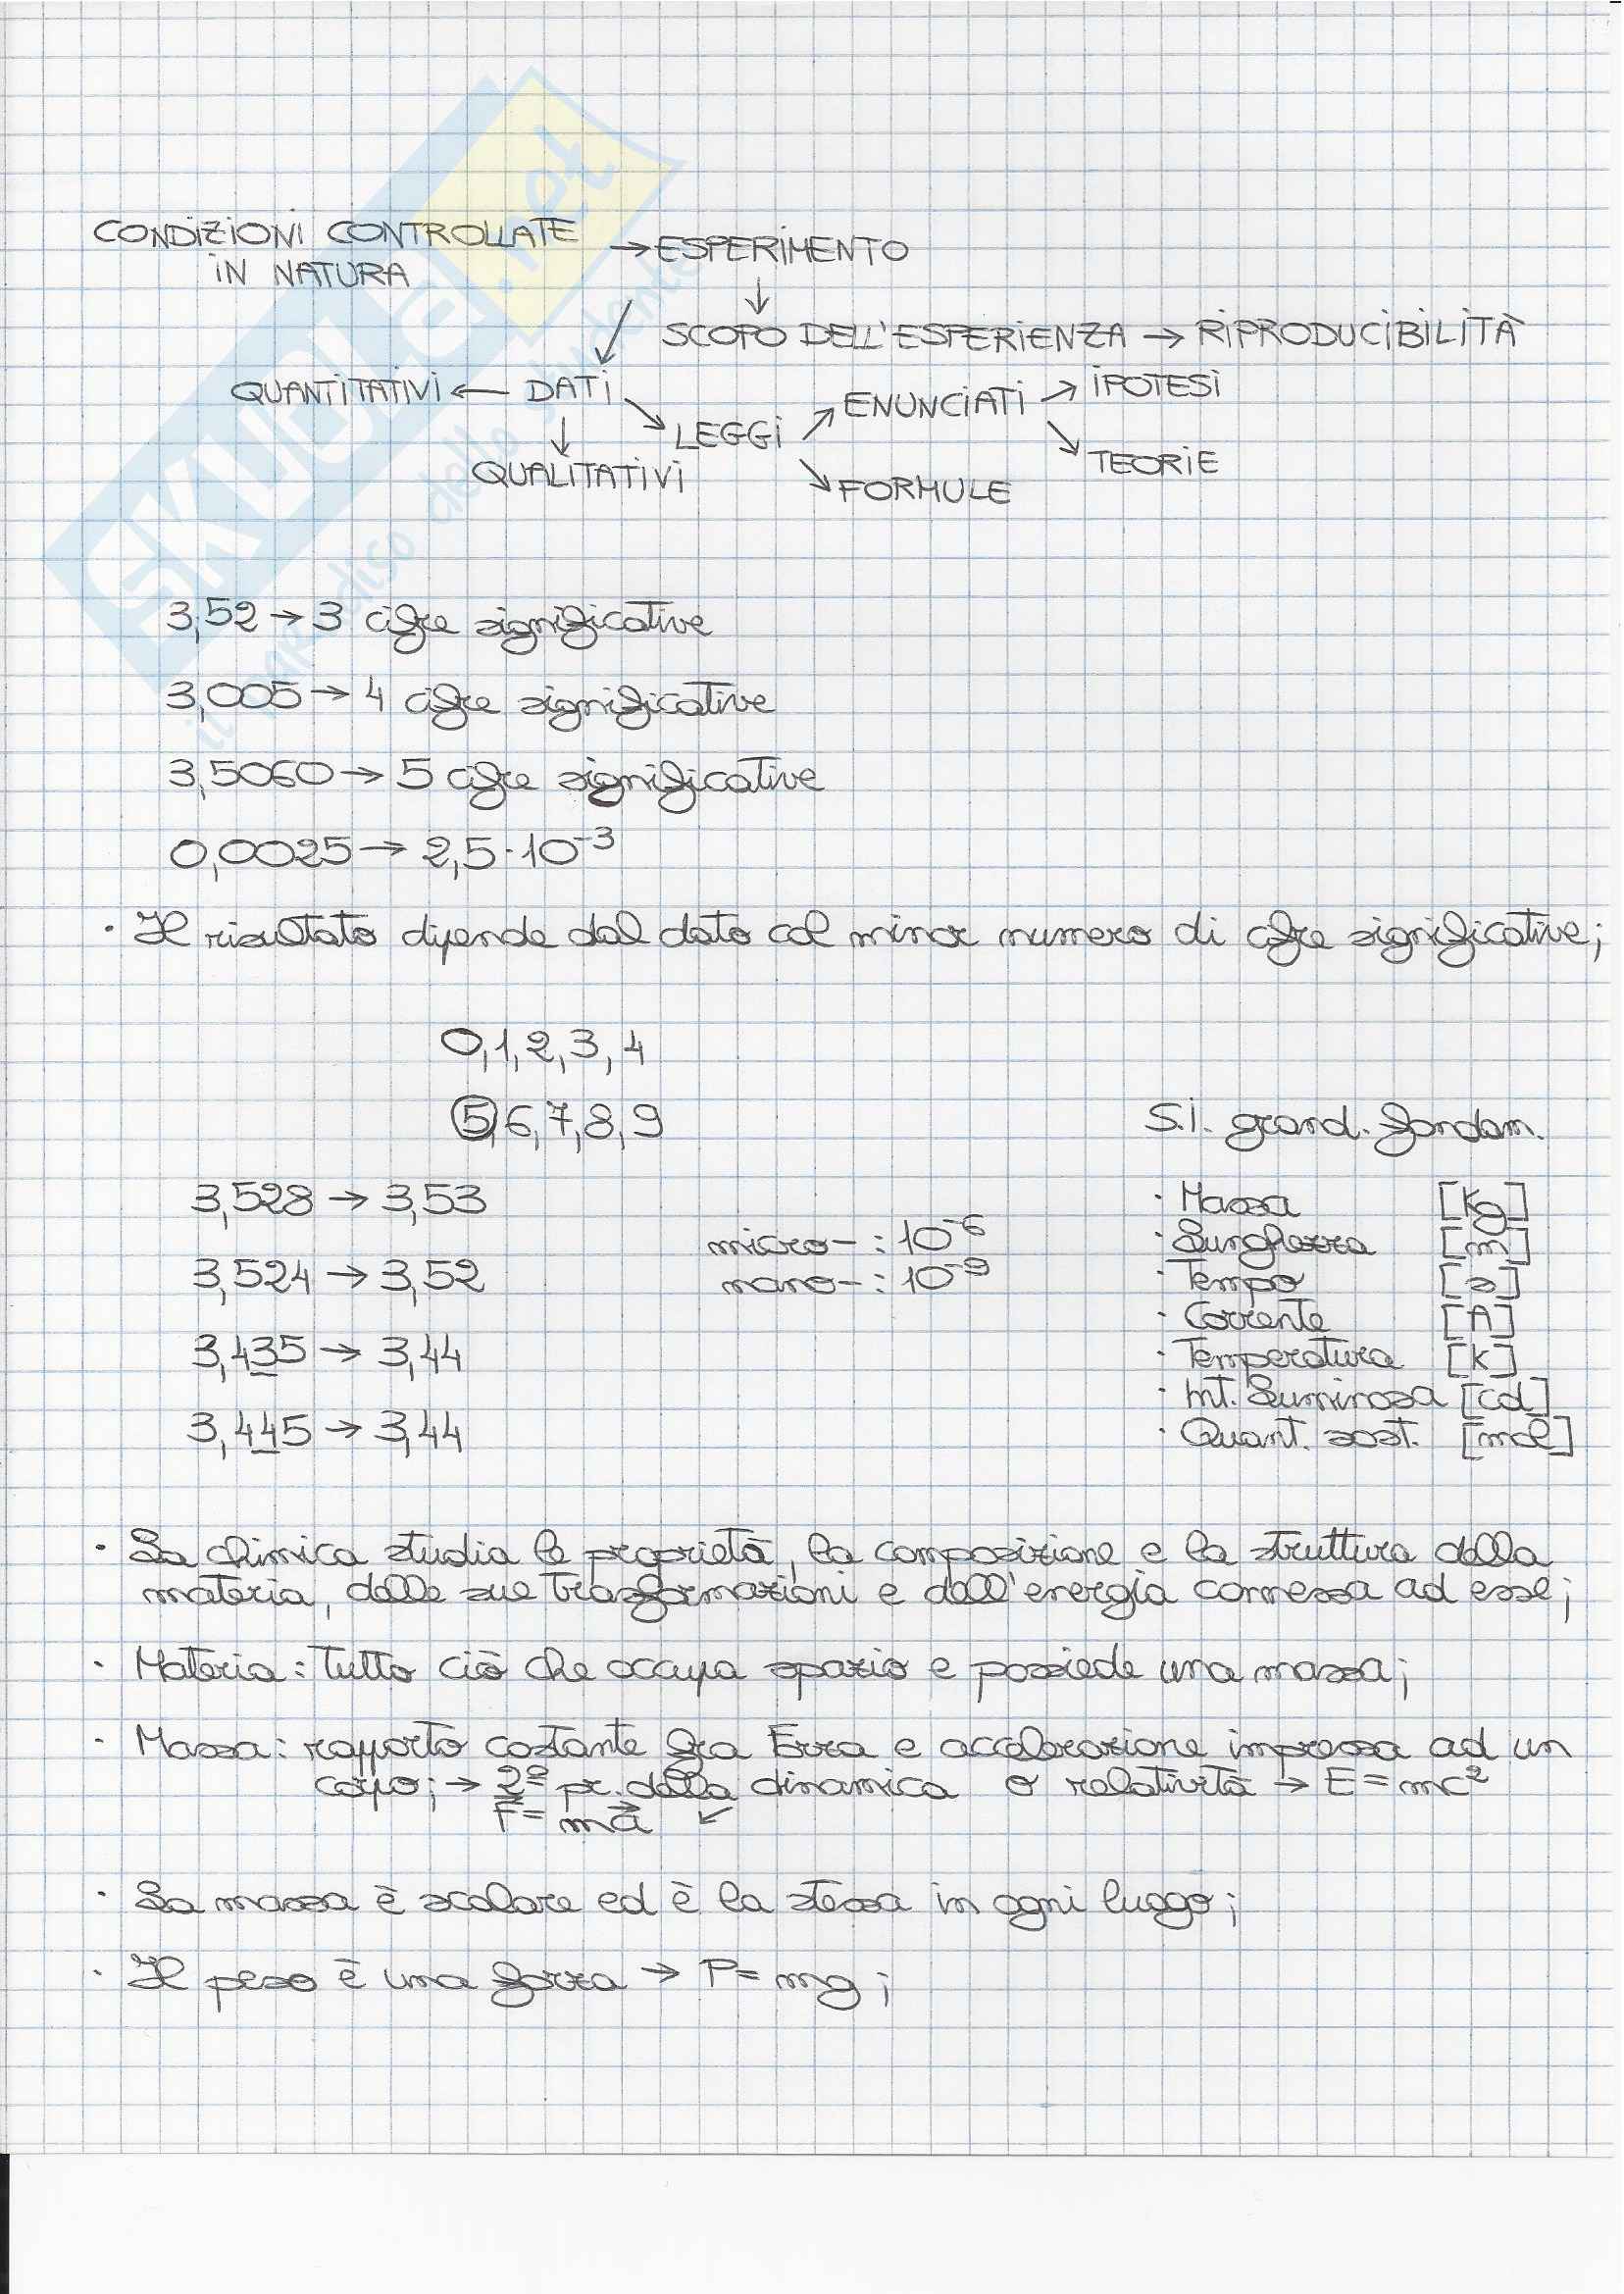 CONDIZIONI CONTROLLATE → ESPERIMENTO
IN NATURA
↓
SCOPO DELL'ESPERIENZA → RIPRODUCIBILITÀ
QUANTITATIVI ← DATI
ENUNCIATI → IPOTESI
LEGGI
TEORIE
QUALITATIVI
FORMULE
SKUOLA.net
il paradiso dello studente
3,52 → 3 cifre significative
3,005 → 4 cifre significative
3,5060 → 5 cifre significative
0,0025 → 2,5·10⁻³
· Il risultato dipende dal dato col minor numero di cifre significative;
0,1,2,3,4
5,6,7,8,9
S.I. grand. fondam.
3,528 → 3,53
3,524 → 3,52
3,435 → 3,44
3,445 → 3,44
micro- : 10⁻⁶
nano- : 10⁻⁹
· Massa [Kg]
· Lunghezza [m]
· Tempo [s]
· Corrente [A]
· Temperatura [K]
· Int. Luminosa [cd]
· Quant. sost. [mol]
· La chimica studia le proprietà, la composizione e la struttura della
materia, delle sue trasformazioni e dell'energia connessa ad esse;
· Materia: tutto ciò che occupa spazio e possiede una massa;
· Massa: rapporto costante fra forza e accelerazione impressa ad un
corpo; → 2º pr. della dinamica o relatività → E = mc²
F = ma ↙
· La massa è scalare ed è la stessa in ogni luogo;
· Il peso è una forza → P = mg;